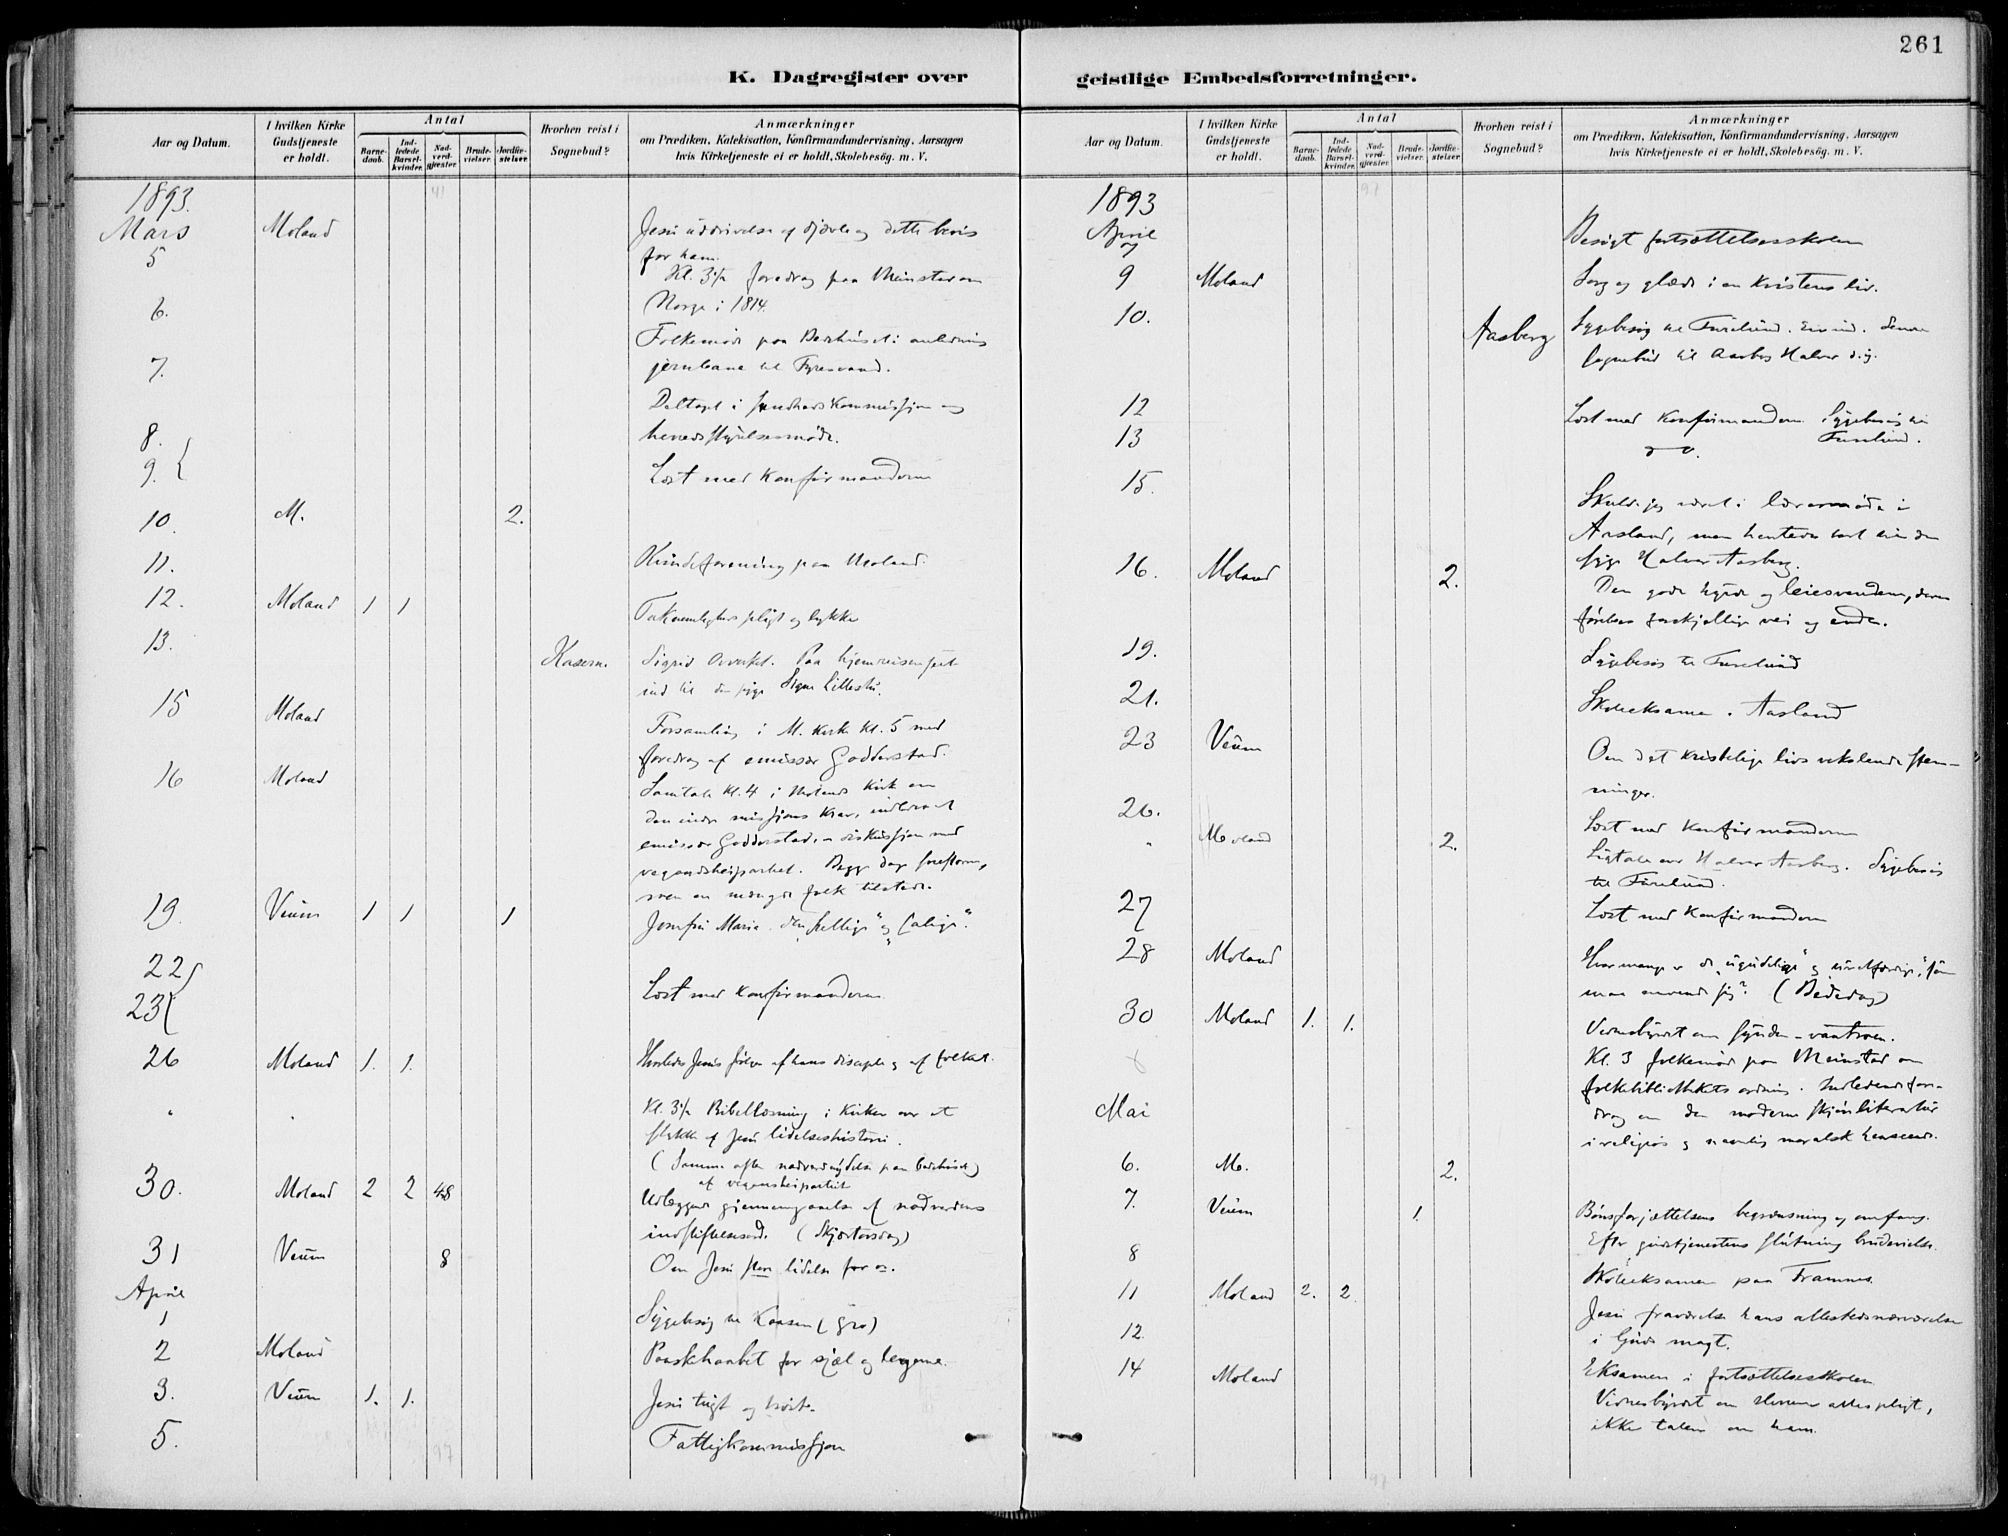 261
K. Dagregister over
geistlige Embedsforretninger.
Aar og Datum.
I hvilken Kirke Gudstjeneste er holdt.
Antal
Barnedaab.
Indledede Barselkvinder.
Nadverdgjester.
Brudevielser.
Jordfæstelser.
Hvorhen reist i Sognebud?
Anmærkninger
om Prædiken, Katekisation, Konfirmandundervisning, Aarsagen
hvis Kirketjeneste ei er holdt, Skolebesög, m. V.
41
1893.
Mars
5 Moland Jesu uddrivelse af djævle og dette bevis
for ham.
Kl. 3½ foredrag paa Meinstad om
6. Norge i 1814.
Folkemøde paa Bedehuset i anledning
7. jernbane til Fyresvand.
Deltaget i sundhedskommissjon og
8. herredsstyrelsesmøde.
9. Læst med konfirmanderne
10. M. 2.
11. Kvindeforening paa Moland.
12. Moland 1 1 Taknemlighets pligt og lykke
13. Kaasen. Sigrid Paa hjemreisen
ind til den syge Signe Lillestu.
15 Moland Forsamling i M. kirke kl. 5 med
foredrag af emissær Godderstad.
16 Moland Samtale kl. 4 i Molands kirke om
den indre missjons krav, indledet
emissær Godderstad, diskussjon med
Begge dage
en mængde folk tilstede.
19. Veum 1 1 1 Jomfru Maria „den hellige“ og „salige“.
22
23 Læst med konfirmanderne
26 Moland 1. 1. Hvorledes Jesus følges af hans disciple og af folket.
" Kl. 3½ Bibellæsning i kirken over et
stykke af Jesu lidelseshistorie.
(Samme aften nadverdnydelse paa bedehuset)
af
30. Moland 2 2 48 gjennemgaaelse af nadverdens
indstiftelsesord. (Skjærtorsdag)
31 Veum 8 Om Jesu store lidelse for os.
April
1 Sygebesøg til Kaasen (Gro)
2 Moland Paaskehaabet for sjæl og legeme.
3. Veum 1. 1. Jesu tugt og trøst.
5. Fattigkommissjon
97
Aar og Datum.
I hvilken Kirke Gudstjeneste er holdt.
Antal
Barnedaab.
Indledede Barselkvinder.
Nadverdgjester.
Brudevielser.
Jordfæstelser.
Hvorhen reist i Sognebud?
Anmærkninger
om Prædiken, Katekisation, Konfirmandundervisning, Aarsagen
hvis Kirketjeneste ei er holdt, Skolebesög, m. V.
97
1893
April
7 Besøgt fortsættelsesskolen
9 Moland Sorg og glæde i en kristens liv.
10. Aasberg Sygebesøg til Furelund. Eivind. Senere
sognebud til Aasberg Halvor
12 Læst med konfirmanderne Sygebesøg til
13 Furelund.
15. Skulde jeg været i lærermøde i
Aasland, men hentedes bort til den
syge Halvor Aasberg.
16. Moland 2. Den gode hyrde og leiesvenden, deres
førelses forskjellige vei og ende.
19. Sygebesøg til Furelund
21. Skoleeksamen i Aasland
23 Veum Om det kristelige livs vekslende stem-
ninger.
26. Læst med konfirmanderne
" Moland 2. Ligtale over Halvor Aasberg. Sygebesøg
til Furelund.
27 Læst med konfirmanderne
28 Moland Hvor mange er de „ugudelige“ og „uretfærdige“, som
maa omvende sig? (Bededag)
30 Moland 1. 1. Vidnesbyrdet om synden - vantroen.
Kl. 3 folkemøde paa Meinstad om
folkebibliothekets ordning. Indledende fore-
drag om den moderne skjønliteratur
i religiøs og navnlig moralsk henseende.
Mai
6. M. 2.
7. Veum 1. Bønsforjættelsens begrænsning og omfang.
Efter gudstjenestens slutning brudevielse.
8 Skoleeksamen paa Framnes.
11 Moland 2. 2. Jesu fraværelse hans allestedsnærværelse
12. i Guds magt.
Eksamen i fortsættelsesskolen
14 Moland Vidnesbyrdet om Herren alles pligt,
ikke talen om ham.
97